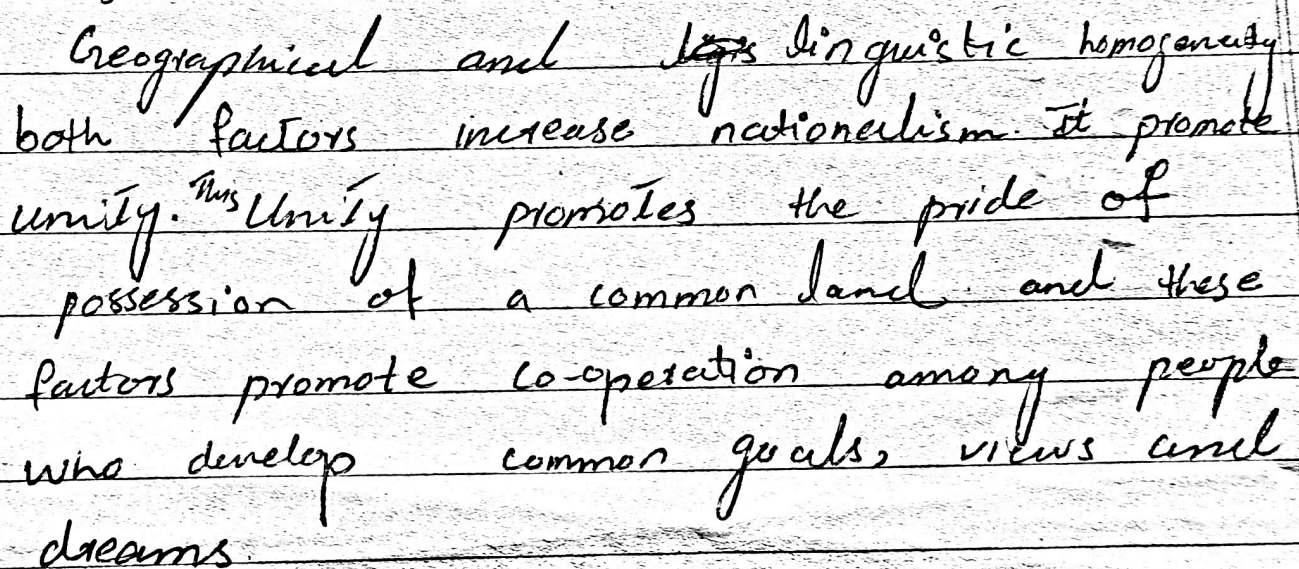 Geographical and linguistic homogeneity
both factors increase nationalism. It promote
unity. This Unity promotes the pride of
possession of a common land. and these
factors promote co-operation among people
who develop common goals, views and
dreams.